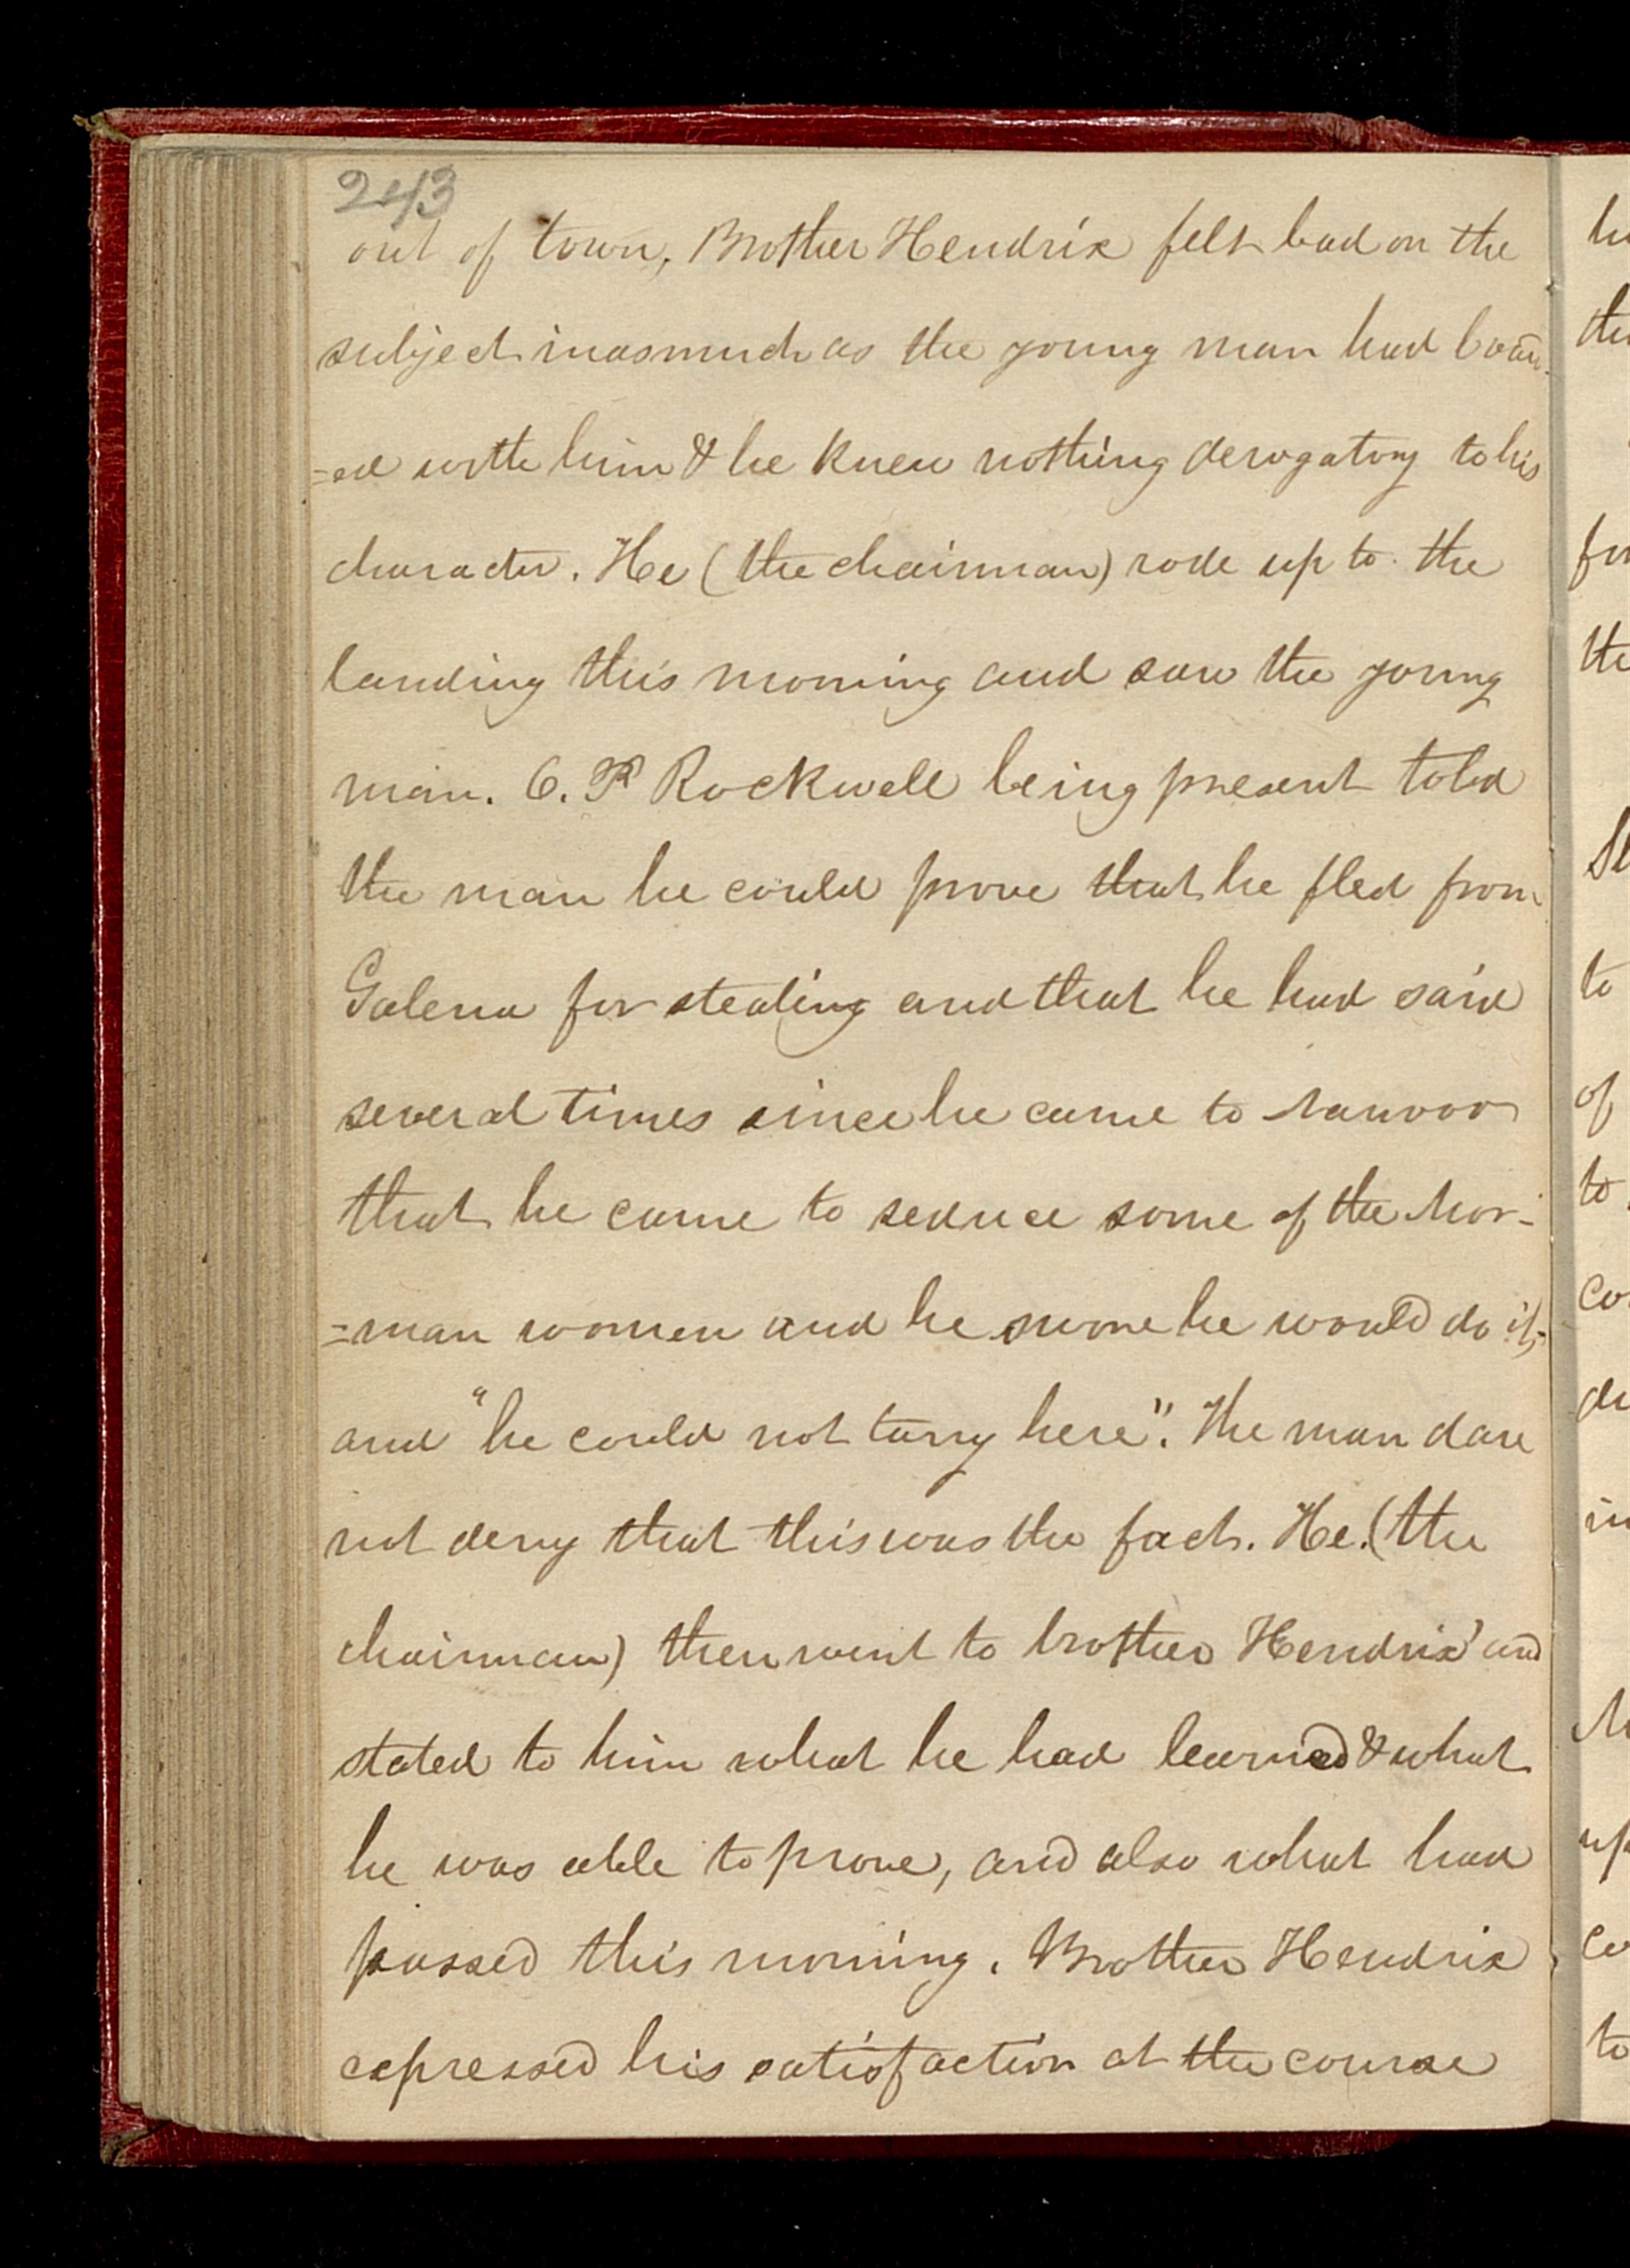 243
out of town, Brother Hendrix felt bad on the
subject inasmuch as the young man had board
=ed with him & he knew nothing derogatory to his
character. He (the chairman) rode up to the
landing this morning and saw the young
man. O. P. Rockwell being present told
the man he could prove that he fled from
Galena for stealing and that he had said
several times since he came to Nauvoo
that he came to seduce some of the Mor-
=man women and he swore he would do it,
and "he could not tarry here". The man dare
not deny that this was the fact. He. (the
chairman) then went to brother Hendrix and
stated to him what he had learned & what
he was able to prove, and also what had
passed this morning. Brother Hendrix
expressed his satisfaction at the course